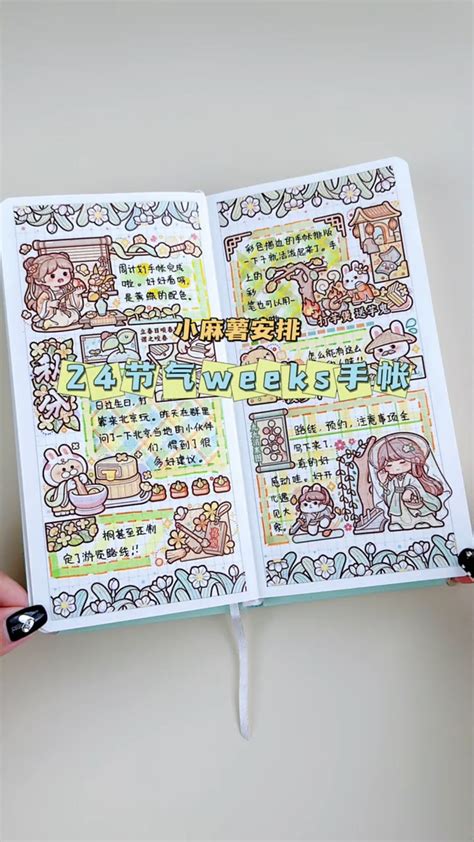 小麻薯安排
24节气weeks手帐
周计划手帐完成
啦。好好看呀,
是黄绿的配色。
日过生日,打
算来北京玩。昨天在群里
问了一下北京当地的小伙伴
们,得到了很
多好建议。
桐甚至还制
定了游览路线!!
彩色描边的手帐排版
一下子就活泼起来了。手
上的
彩
笔也可以用
怎么能有这么
路线、预约、注意事项全
写下来了。
真的好
感动哇。好开
心遇
见大
家。